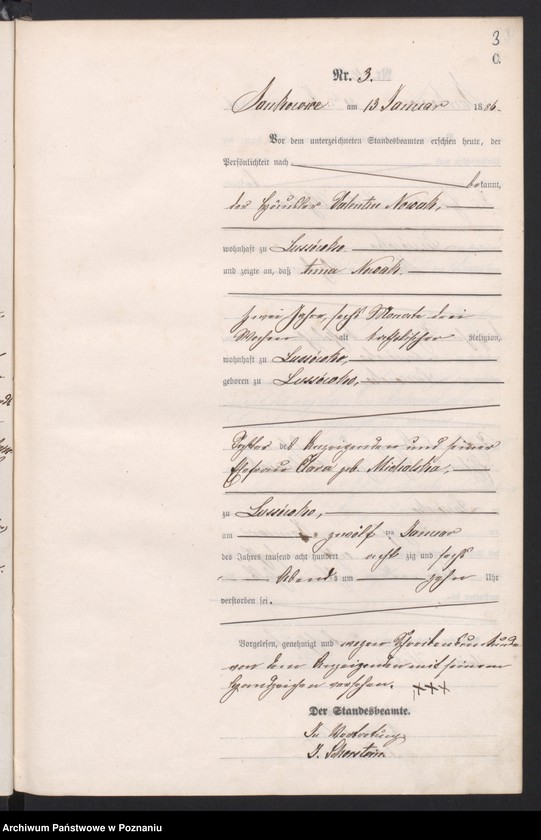 3
C.
Nr. 3.
am 13 Januar 1886.
Vor dem unterzeichneten Standesbeamten erschien heute, der
Persönlichkeit nach
bekannt,
der Häusler Valentin Nowak,
wohnhaft zu Lussowko
und zeigte an, daß Anna Nowak
zwei Jahre, sechs Monate drei
Wochen alt katholischer Religion,
wohnhaft zu Lussowko,
geboren zu Lussowko,
Tochter des Anzeigenden und seiner
Ehefrau Clara geb. Michalska,
zu Lussowko,
am zwölften Januar
des Jahres tausend acht hundert achtzig und sechs
Abends um zehn Uhr
verstorben sei.
Vorgelesen, genehmigt und wegen Schreibensunkunde
von dem Anzeigenden mit seinem
Handzeichen versehen. +++
Der Standesbeamte.
In Vertretung
Archiwum Państwowe w Poznaniu